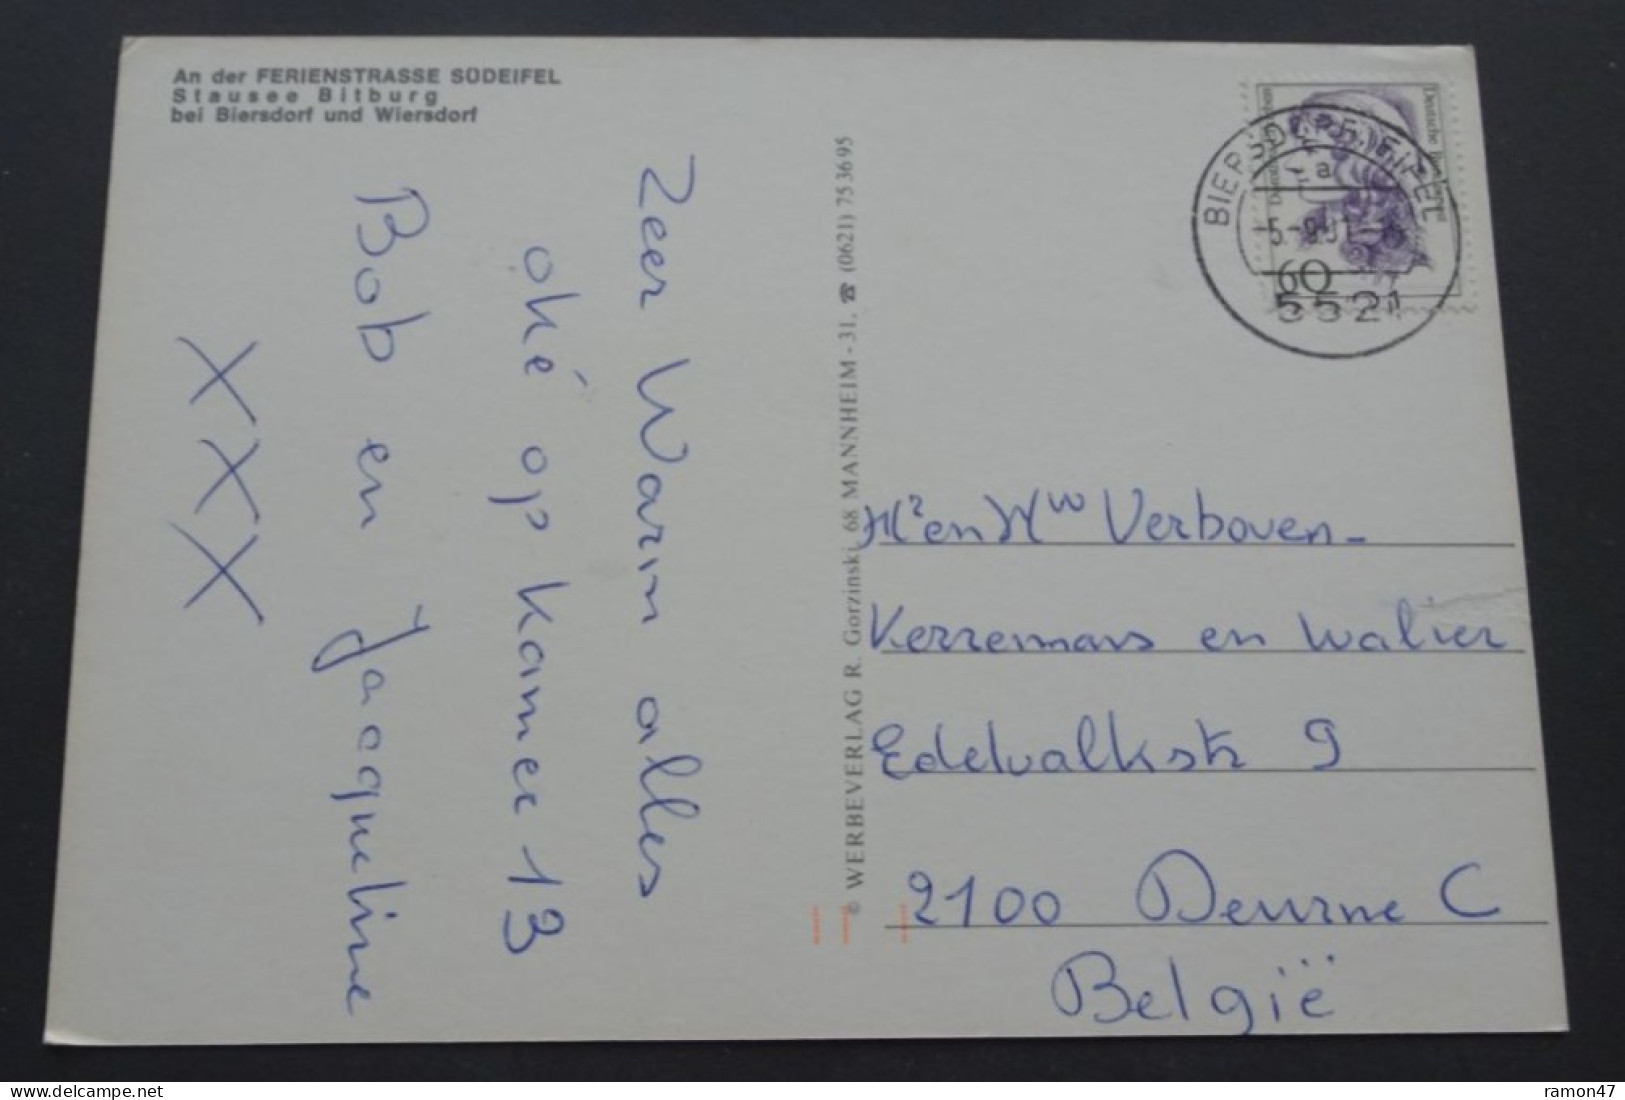 An der FERIENSTRASSE SÜDEIFEL
Stausee Bitburg
bei Biersdorf und Wiersdorf
Zeer Warm alles
oké op Kamer 13
Bob en Jacqueline
XXX
© WERBEVERLAG R. Gorzinski, 68 MANNHEIM - 31, ☎ (0621) 75 36 95
Deutsche Bundespost
60
BIERSDORF, EIFEL
a
5521
Hr en Mw Verboven-
Kerremans en Walter
Edelvalkstr 9
2100 Deurne C
België
ramon47